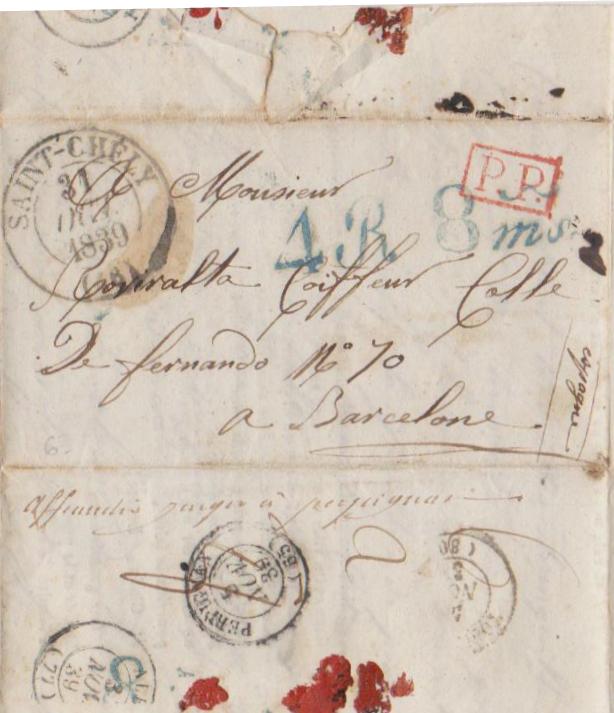 SAINT-CHÉLY
31
1839
(46)
P.P.
A Monsieur
4R 8 ms
Roviralta Coiffeur Calle
De fernando N° 70
a Barcelone
espagne
6.
affranchie jusqu'à perpignan
PERPIGNAN
5
NOV
39
(65)
2
NOV
(80)
3
NOV
39
(77)